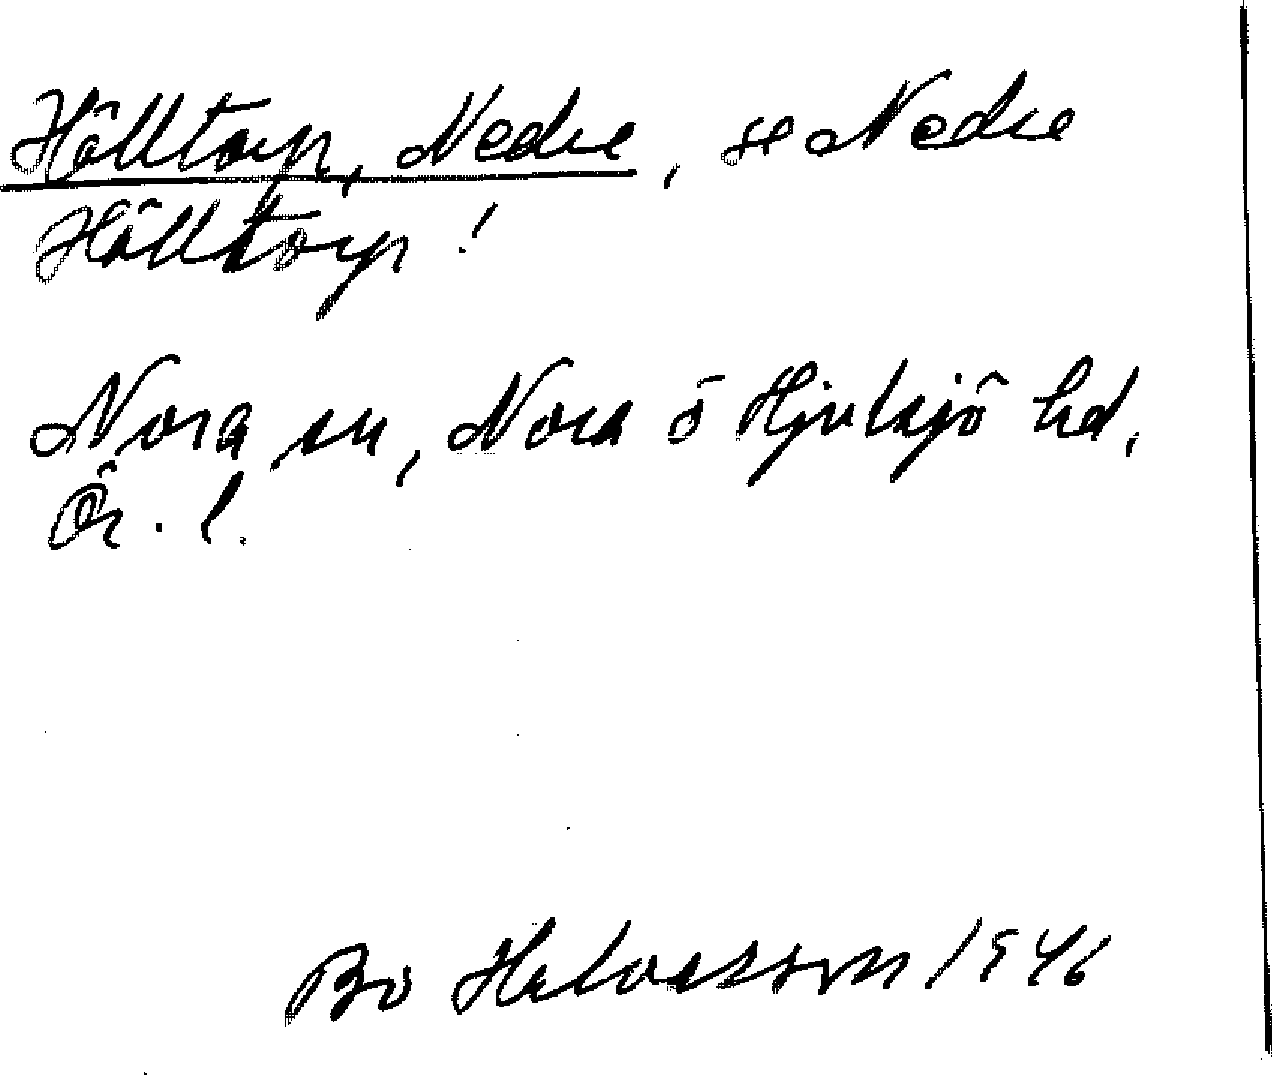 Hålltorp, Nedre, se Nedre
Hålltorp!
Nora sn, Nora ö Hjulsjö hd,
Ör. l.
Bo Halvarsson 1946